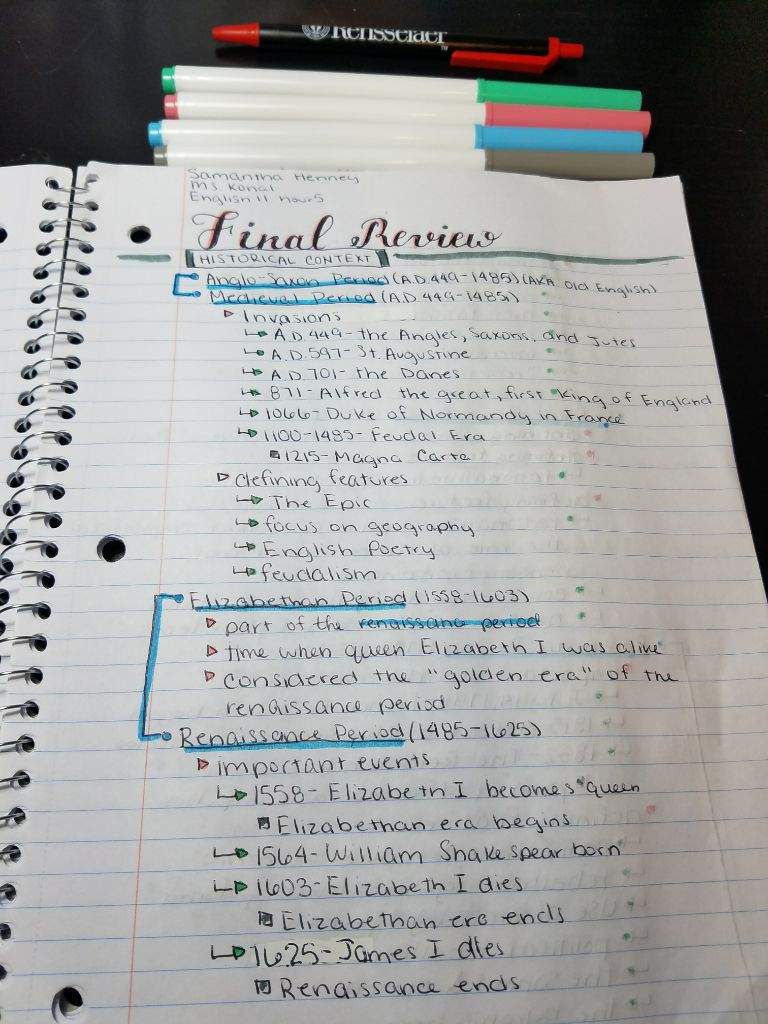 Rensselaer
TM
Samantha Henney
Ms. Konal
English 11 hour 5
Final Review
HISTORICAL CONTEXT
Anglo-Saxon Period (A.D. 449-1485) (AKA Old English)
Medieval Period (A.D. 449-1485)
Invasions
A.D. 449- the Angles, Saxons, and Jutes
A.D. 597- St. Augustine
A.D. 701- the Danes
871- Alfred the great, first King of England
1066- Duke of Normandy in France
1100-1485- Feudal Era
1215- Magna Carta
defining features
The Epic
focus on geography
English Poetry
feudalism
Elizabethan Period (1558-1603)
part of the renaissanc period
time when queen Elizabeth I was alive
considered the "golden era" of the
renaissance period
Renaissance Period (1485-1625)
important events
1558- Elizabeth I becomes queen
Elizabethan era begins
1564- William Shakespear born
1603- Elizabeth I dies
Elizabethan era ends
1625- James I dies
Renaissance ends